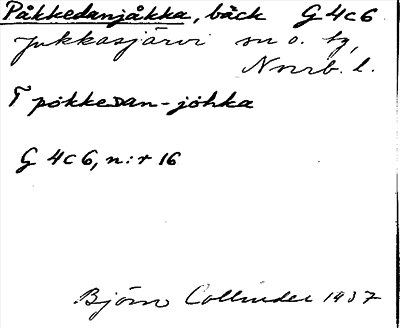 Påkkedanjåkka, bäck G4c6
Jukkasjärvi sn o. tg,
Norrb. l.
T pökkeδan-jöhka
G 4c6, n:r 16
Björn Collinder 1937